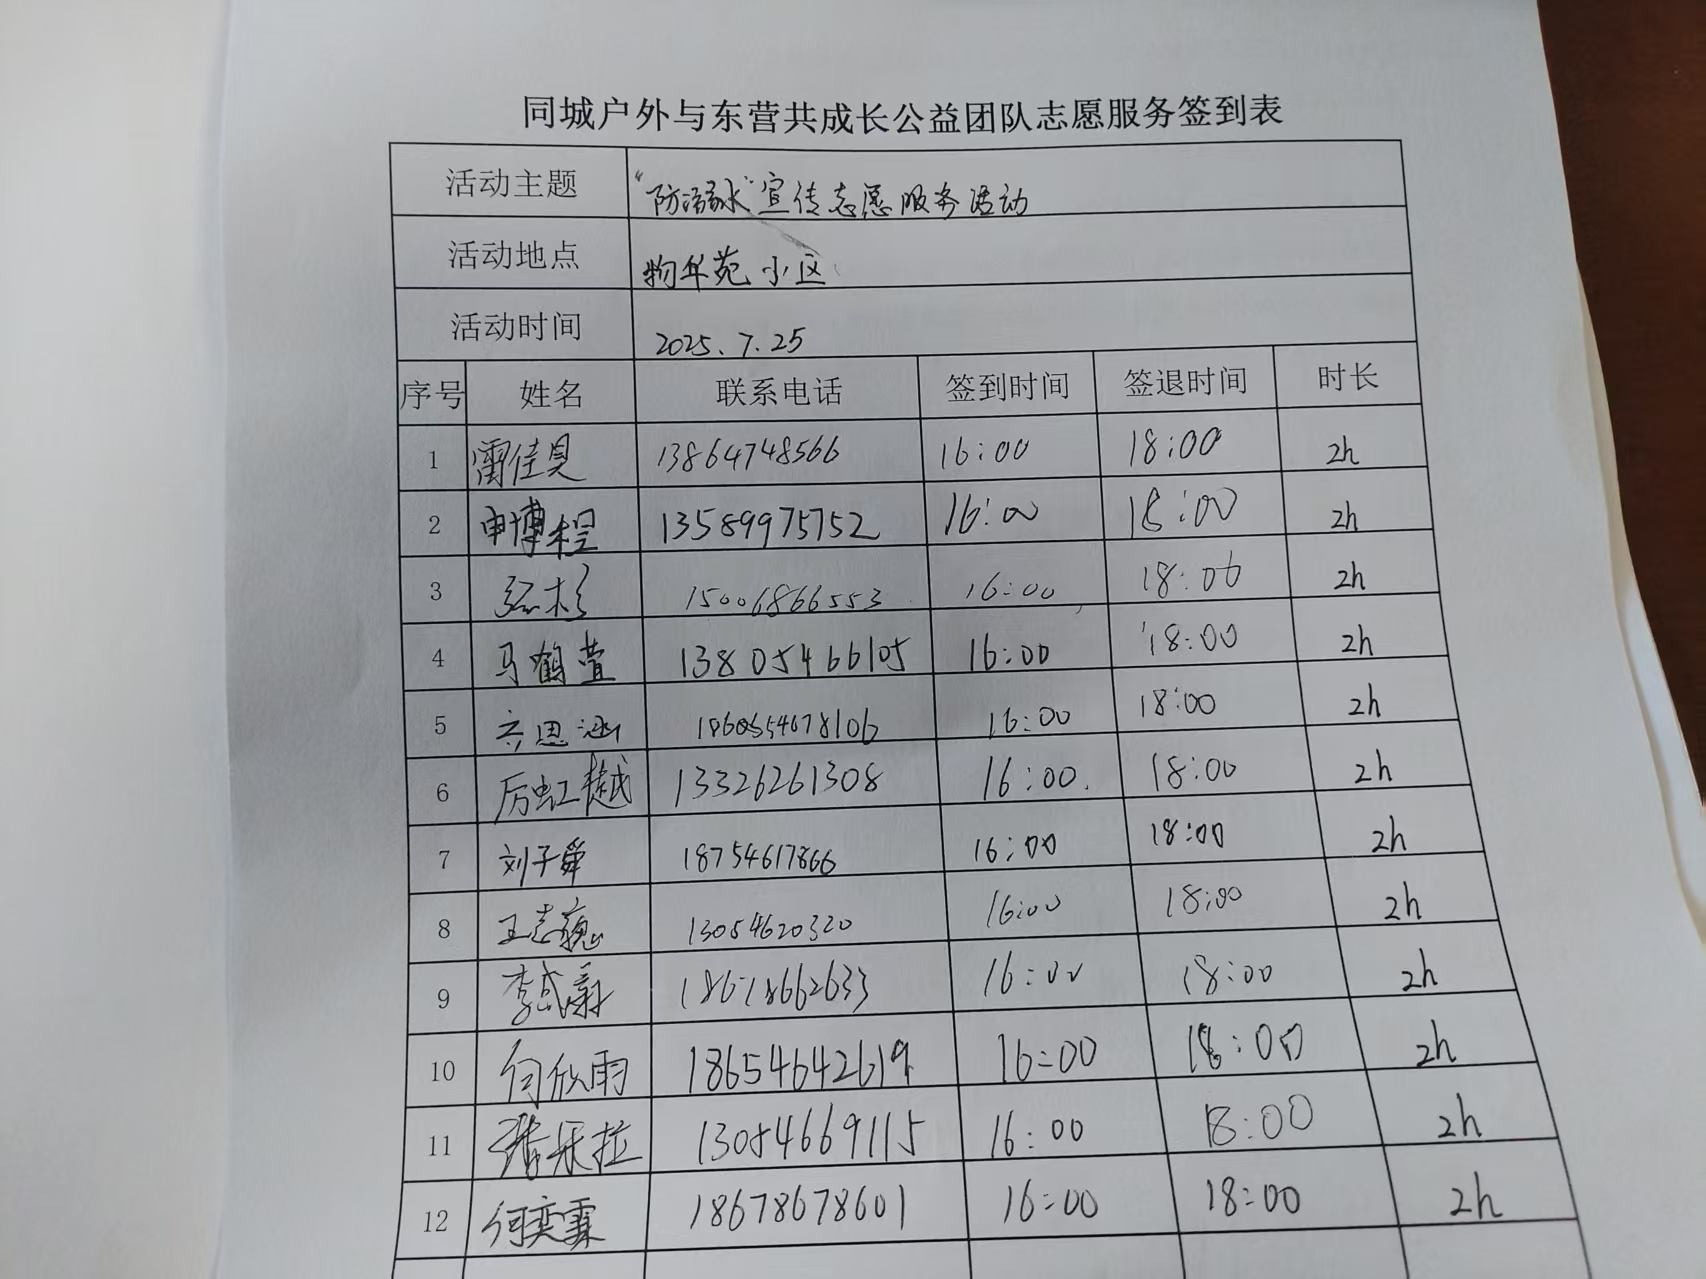 同城户外与东营共成长公益团队志愿服务签到表
活动主题 “防溺水”宣传志愿服务活动
活动地点 物华苑小区
活动时间 2025.7.25
序号 姓名 联系电话 签到时间 签退时间 时长
1 雷佳昊 13864748566 16:00 18:00 2h
2 申博程 13589975752 16:00 18:00 2h
3 15006866553 16:00 18:00 2h
4 马鹤萱 13805466105 16:00 18:00 2h
5 16:00 18:00 2h
6 厉虹樾 13326261308 16:00 18:00 2h
7 刘子舜 18754617866 16:00 18:00 2h
8 王志巍 13054620320 16:00 18:00 2h
9 18678662633 16:00 18:00 2h
10 何欣雨 18654642619 16:00 18:00 2h
11 13054669115 16:00 18:00 2h
12 何奕霖 18678678601 16:00 18:00 2h